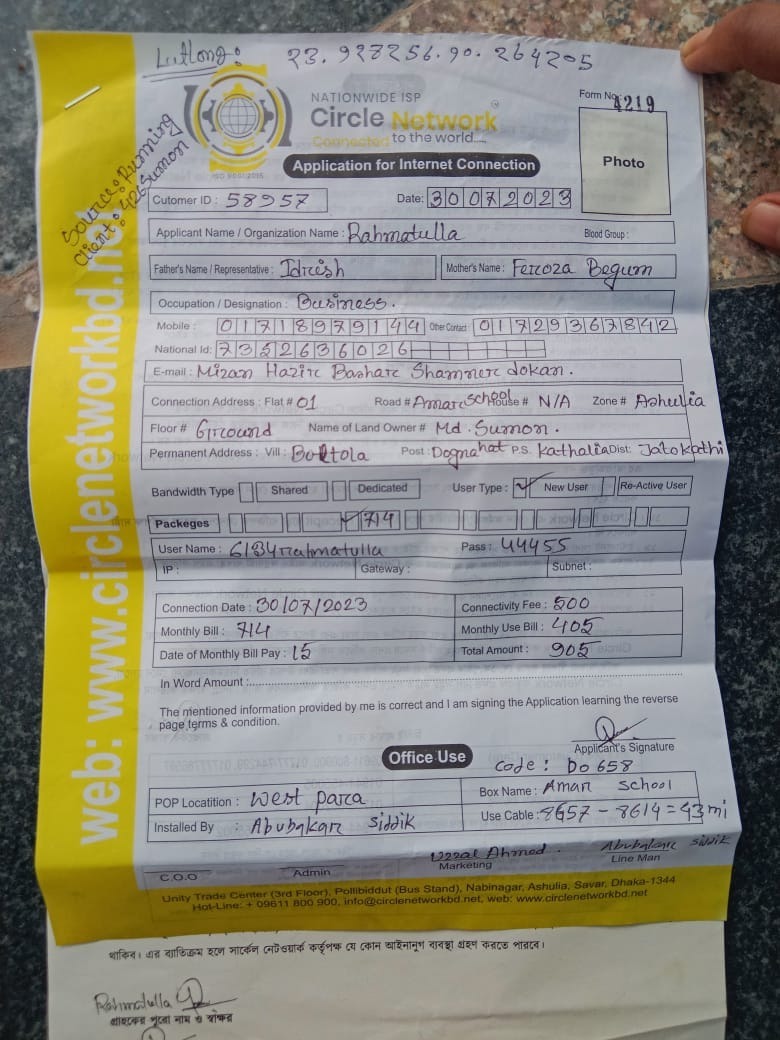 Latlong: 23.928256.90.264205
NATIONWIDE ISP
Circle Network
Connected to the world....
ISO 9001:2015
Form No: 4219
Photo
Application for Internet Connection
Source: Running
Client: 426 Sumon
Cutomer ID : 58957 Date: 30072023
Applicant Name / Organization Name : Rahmatulla Blood Group :
Father's Name / Representative : Idrish Mother's Name : Feroza Begum
Occupation / Designation : Business.
Mobile : 01718979144 Other Contact : 01729367842
National Id: 7352636026
E-mail : Mizan Hazir Bashar Shamner dokan.
Connection Address : Flat # 01 Road # Amar School House # N/A Zone # Ashulia
Floor # Ground Name of Land Owner # Md. Sumon.
Permanent Address : Vill : Boltola Post : Dognahat P.S. Kathalia Dist: Jalokathi
Bandwidth Type Shared Dedicated User Type : ✓ New User Re-Active User
Packeges ✓ 714
User Name : 6134rahmatulla Pass : 44455
IP : Gateway : Subnet :
Connection Date : 30/07/2023 Connectivity Fee : 500
Monthly Bill : 714 Monthly Use Bill : 405
Date of Monthly Bill Pay : 15 Total Amount : 905
In Word Amount :
The mentioned information provided by me is correct and I am signing the Application learning the reverse
page terms & condition.
Applicant's Signature
Office Use
Code : Do658
POP Locatition : West para Box Name : Aman School
Installed By : Abubakar Siddik Use Cable : 8657 - 8614 = 43 mi
Uzzal Ahmed. Abubakar Siddik
C.O.O Admin Marketing Line Man
Unity Trade Center (3rd Floor), Pollibiddut (Bus Stand), Nabinagar, Ashulia, Savar, Dhaka-1344
Hot-Line: + 09611 800 900, info@circlenetworkbd.net, web: www.circlenetworkbd.net
web: www.circlenetworkbd.net
থাকিব। এর ব্যতিক্রম হলে সার্কেল নেটওয়ার্ক কর্তৃপক্ষ যে কোন আইনানুগ ব্যবস্থা গ্রহণ করতে পারবে।
Rahmatulla
গ্রাহকের পুরো নাম ও স্বাক্ষর